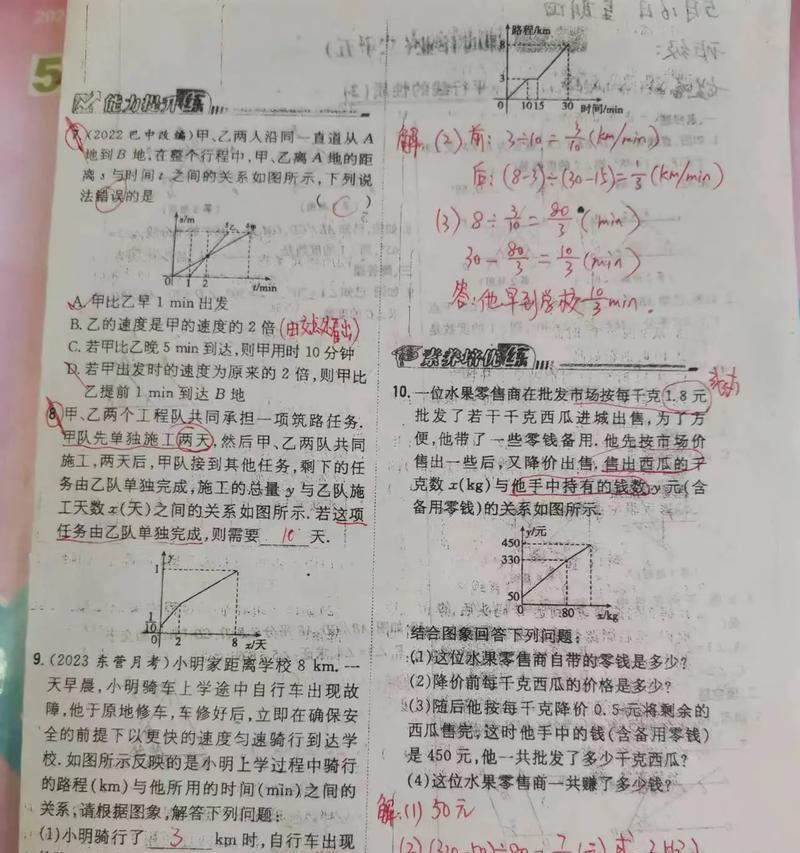 5月16日 星期四
班级:
能力提升练
7.(2022巴中改编)甲、乙两人沿同一直道从A
地到B地,在整个行程中,甲、乙离A地的距
离s与时间t之间的关系如图所示,下列说
法错误的是 ( C )
s/m
0 1 2 t/min
A.甲比乙早1 min出发
B.乙的速度是甲的速度的2倍(由交点处看出)
C.若甲比乙晚5 min到达,则甲用时10分钟
D.若甲出发时的速度为原来的2倍,则甲比
乙提前1 min到达B地
8.甲、乙两个工程队共同承担一项筑路任务.
甲队先单独施工两天.然后甲、乙两队共同
施工,两天后,甲队接到其他任务,剩下的任
务由乙队单独完成,施工的总量y与乙队施
工天数x(天)之间的关系如图所示.若这项
任务由乙队单独完成,则需要 10 天.
y
1
1/10
0 2 8 x/天
9.(2023东营月考)小明家距离学校8 km.一
天早晨,小明骑车上学途中自行车出现故
障,他于原地修车,车修好后,立即在确保安
全的前提下以更快的速度匀速骑行到达学
校.如图所示反映的是小明上学过程中骑行
的路程(km)与他所用的时间(min)之间的
关系,请根据图象,解答下列问题:
(1)小明骑行了 3 km时,自行车出现
路程/km
8
3
0 10 15 30 时间/min
解:(2)前: 3÷10=3/10(km/min)
后:(8-3)÷(30-15)=1/3(km/min)
(3) 8÷3/10=80/3(min)
30-80/3=10/3(min)
答:他早到学校10/3min.
素养培优练
10.一位水果零售商在批发市场按每千克1.8元
批发了若干千克西瓜进城出售,为了方
便,他带了一些零钱备用.他先按市场价
售出一些后,又降价出售,售出西瓜的千
克数x(kg)与他手中持有的钱数y元(含
备用零钱)的关系如图所示.
y/元
450
330
50
0 80 x/kg
结合图象回答下列问题:
(1)这位水果零售商自带的零钱是多少?
(2)降价前每千克西瓜的价格是多少?
(3)随后他按每千克降价0.5元将剩余的
西瓜售完,这时他手中的钱(含备用零钱)
是450元,他一共批发了多少千克西瓜?
(4)这位水果零售商一共赚了多少钱?
解:(1) 50元